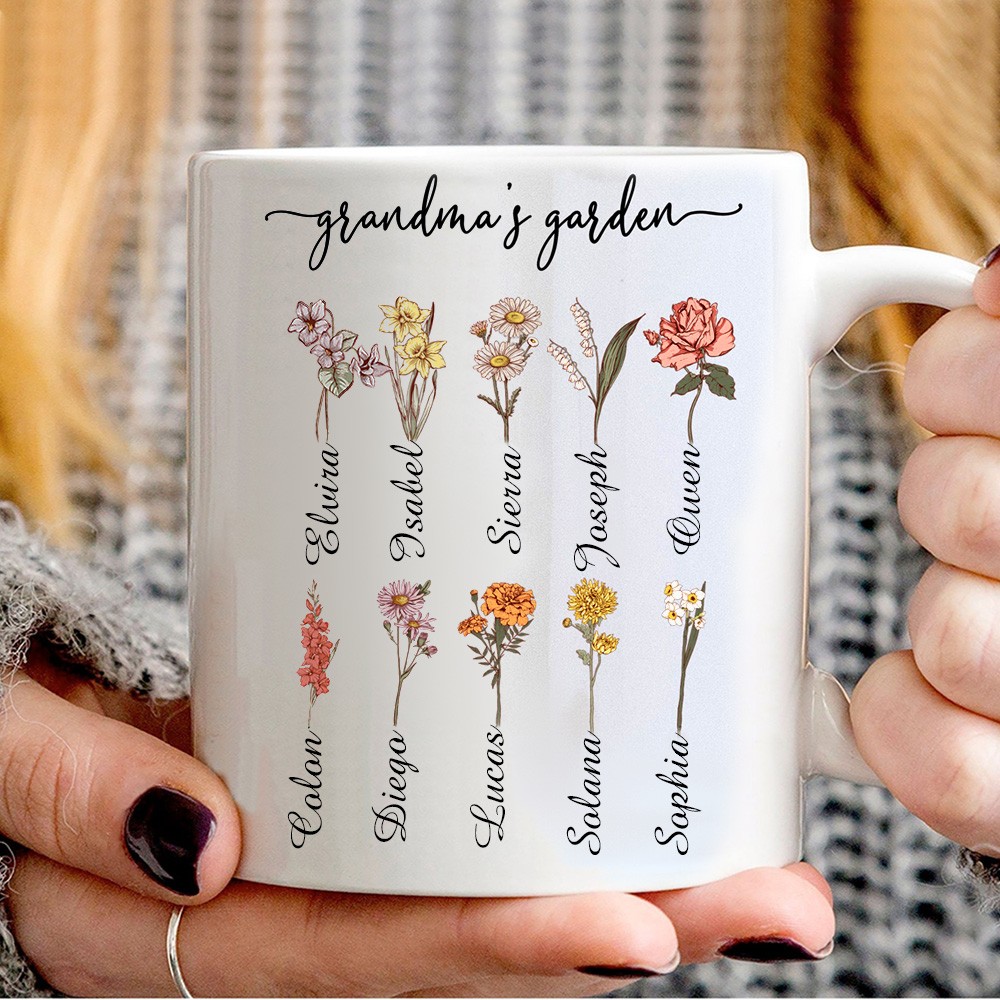 grandma's garden
Elvira
Isabel
Sierra
Joseph
Owen
Colon
Diego
Lucas
Solana
Sophia